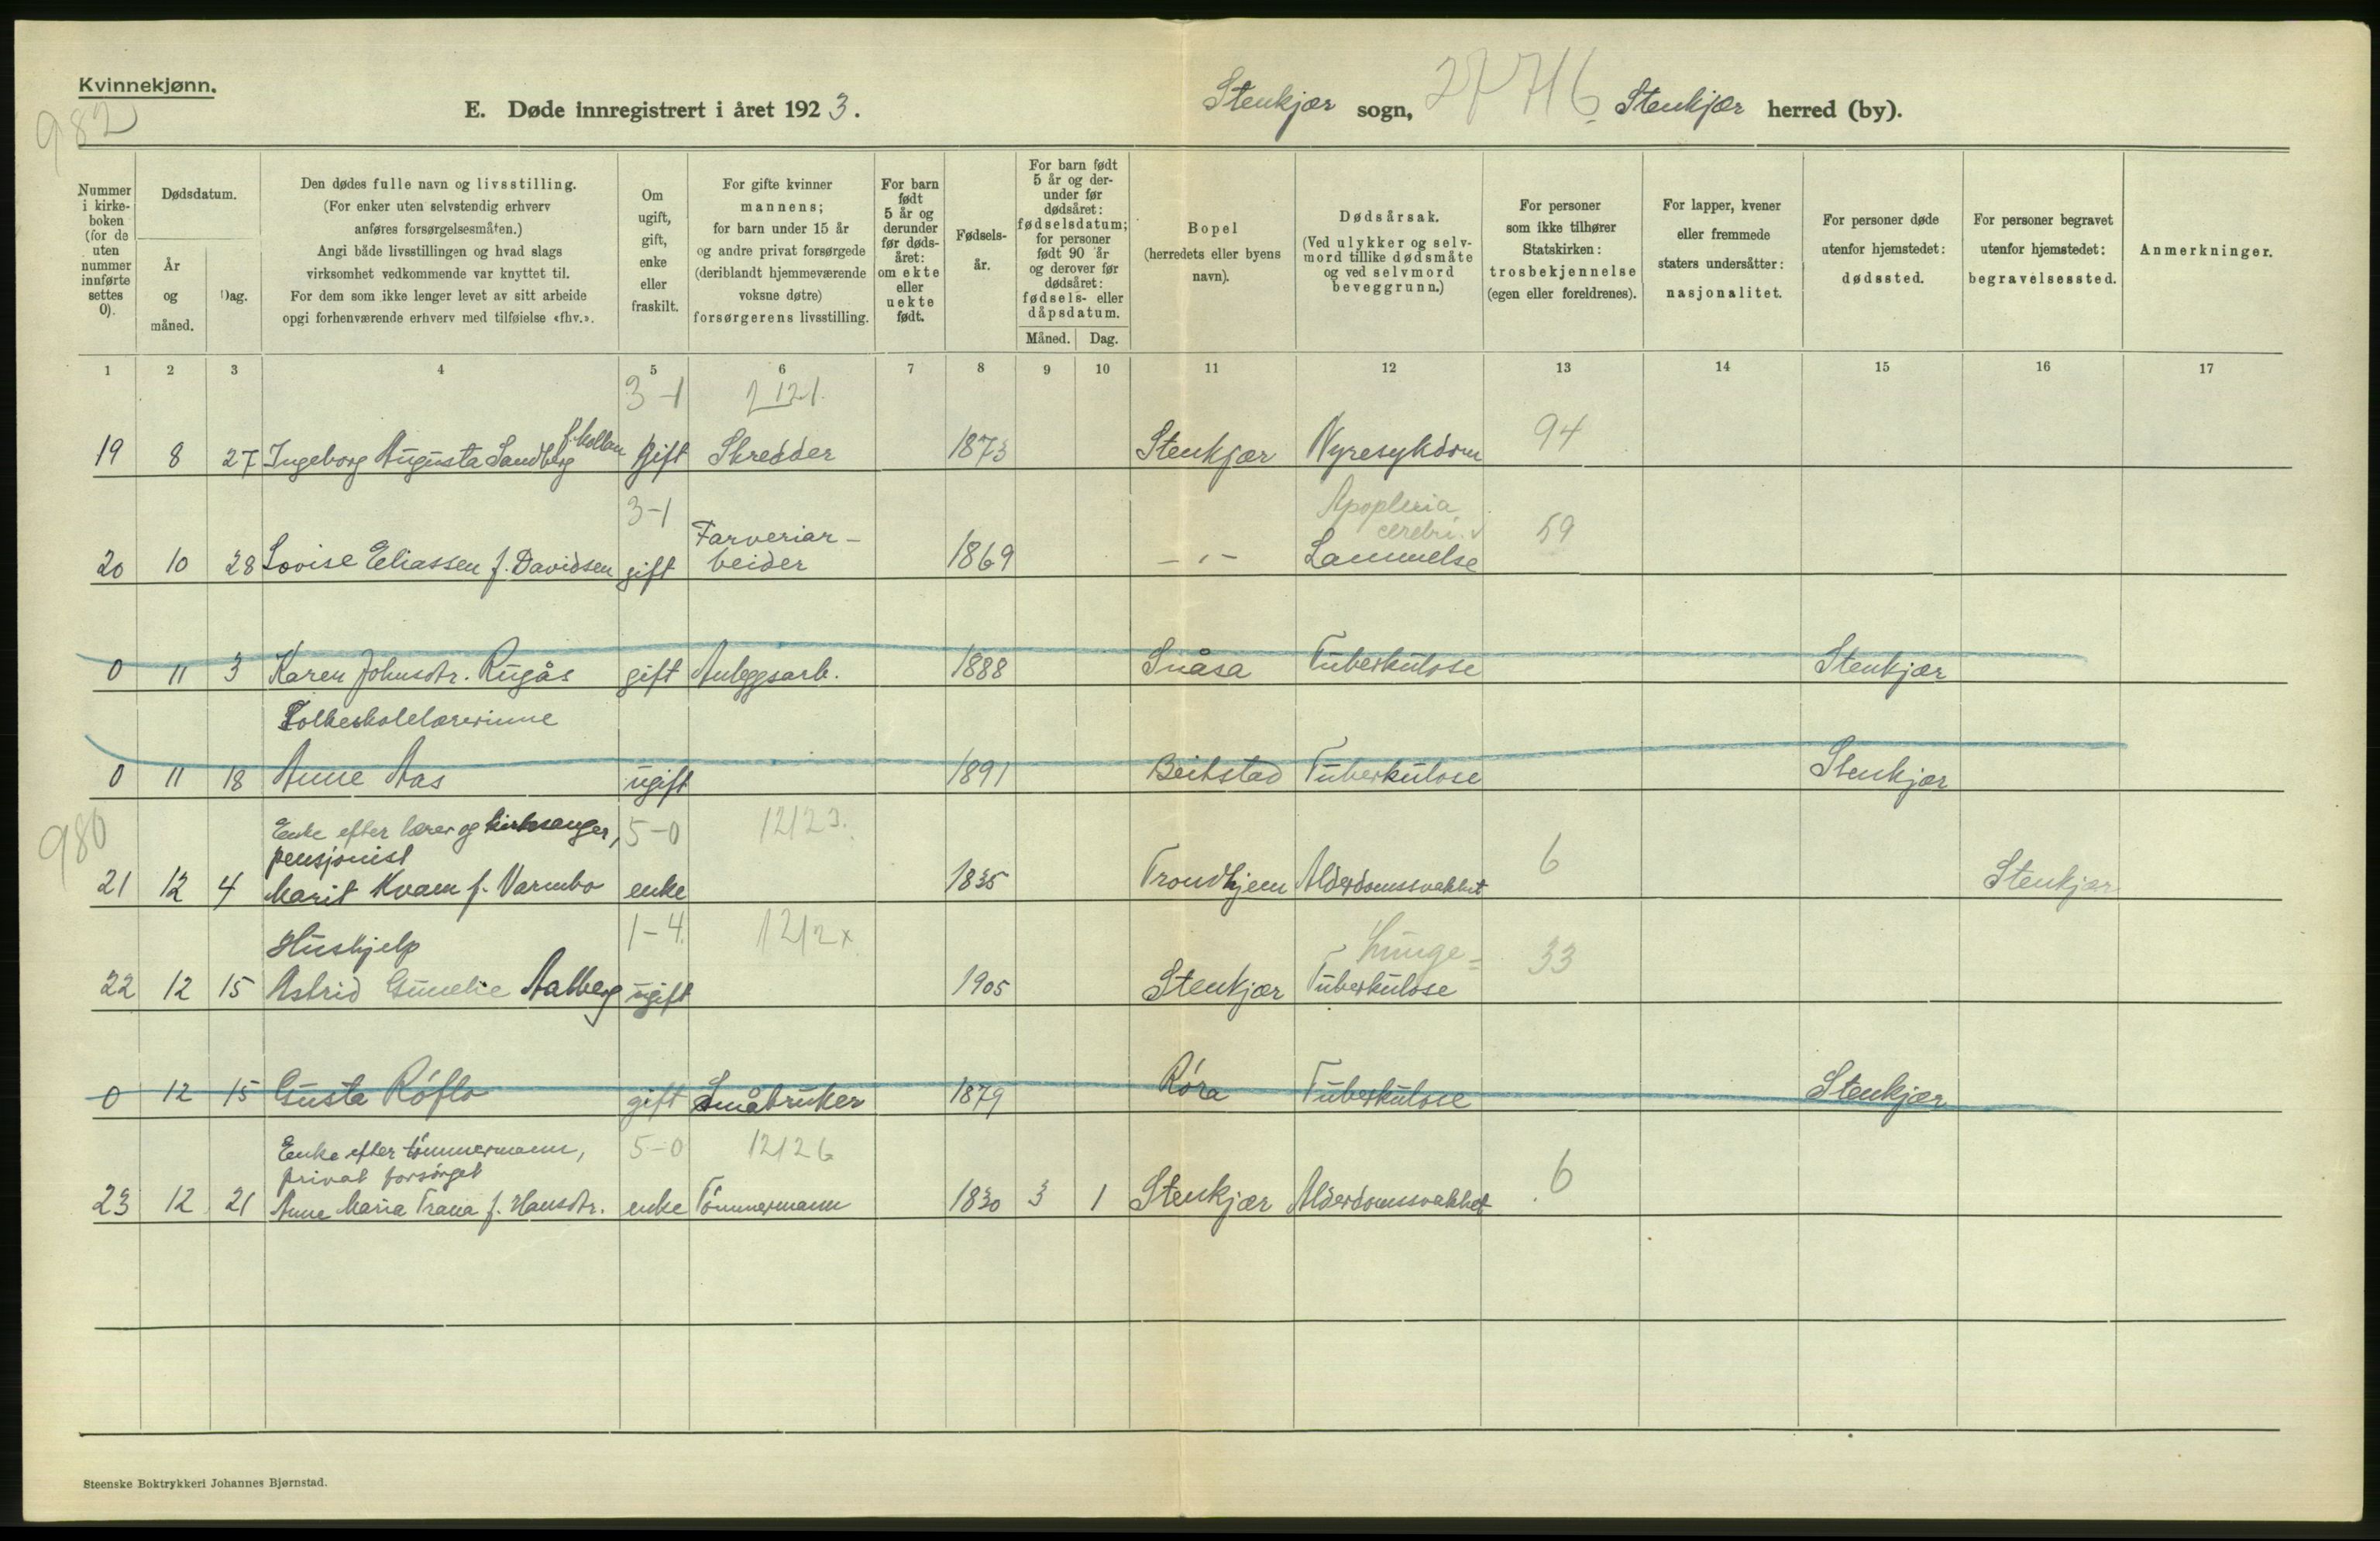 Kvinnekjønn.
982
E. Døde innregistrert i året 1923.
Stenkjær sogn, 27716 Stenkjær herred (by).
Nummer i kirkeboken (for de uten nummer innførte settes 0).
Dødsdatum.
År og måned.
Dag.
Den dødes fulle navn og livsstilling.
(For enker uten selvstendig erhverv
anføres forsørgelsesmåten.)
Angi både livsstillingen og hvad slags
virksomhet vedkommende var knyttet til.
For dem som ikke lenger levet av sitt arbeide
opgi forhenværende erhverv med tilføielse «fhv.».
Om ugift, gift, enke eller fraskilt.
For gifte kvinner
mannens;
for barn under 15 år
og andre privat forsørgede
(deriblandt hjemmeværende
voksne døtre)
forsørgerens livsstilling.
For barn født 5 år og derunder før dødsåret: om ekte eller uekte født.
Fødselsår.
For barn født 5 år og derunder før dødsåret: fødselsdatum; for personer født 90 år og derover før dødsåret: fødsels- eller dåpsdatum.
Måned. Dag.
Bopel
(herredets eller byens
navn).
Dødsårsak.
(Ved ulykker og selv-
mord tillike dødsmåte
og ved selvmord
beveggrunn.)
For personer
som ikke tilhører
Statskirken:
trosbekjennelse
(egen eller foreldrenes).
For lapper, kvener
eller fremmede
staters undersåtter:
nasjonalitet.
For personer døde
utenfor hjemstedet:
dødssted.
For personer begravet
utenfor hjemstedet:
begravelsessted.
Anmerkninger.
1 2 3 4 5 6 7 8 9 10 11 12 13 14 15 16 17
3-1
19 8 27 Ingeborg Augusta Sandberg f. Mollan gift Skredder 1873 Stenkjær Nyresykdom 94
3-1 Apoplexia
cerebri.
20 10 28 Lovise Eliassen f. Davidsen gift Farveriar-
beider 1869 - " - Lammelse 59
0 11 3 Karen Johnsdtr. Rugås gift Anleggsarb. 1888 Snåsa Tuberkulose Stenkjær
Folkeskolelærerinne
0 11 18 Anne Aas ugift 1891 Beitstad Tuberkulose Stenkjær
980
Enke efter lærer og kirkesanger, 5-0 12123.
pensjonist
21 12 4 Marit Kvam f. Varmbo enke 1835 Trondhjem Alderdomssvakhet 6 Stenkjær
Hushjelp 1-4. 1212x Lunge-
22 12 15 Astrid Gunelie Aalberg ugift 1905 Stenkjær Tuberkulose 33
0 12 15 Gusta Róflo gift Småbruker 1879 Róra Tuberkulose Stenkjær
Enke efter tómmermann, 5-0 12126
privat forsórget
23 12 21 Anne Maria Trana f. Hansdtr. enke Tómmermann 1830 3 1 Stenkjær Alderdomssvakhet 6
Steenske Boktrykkeri Johannes Bjørnstad.